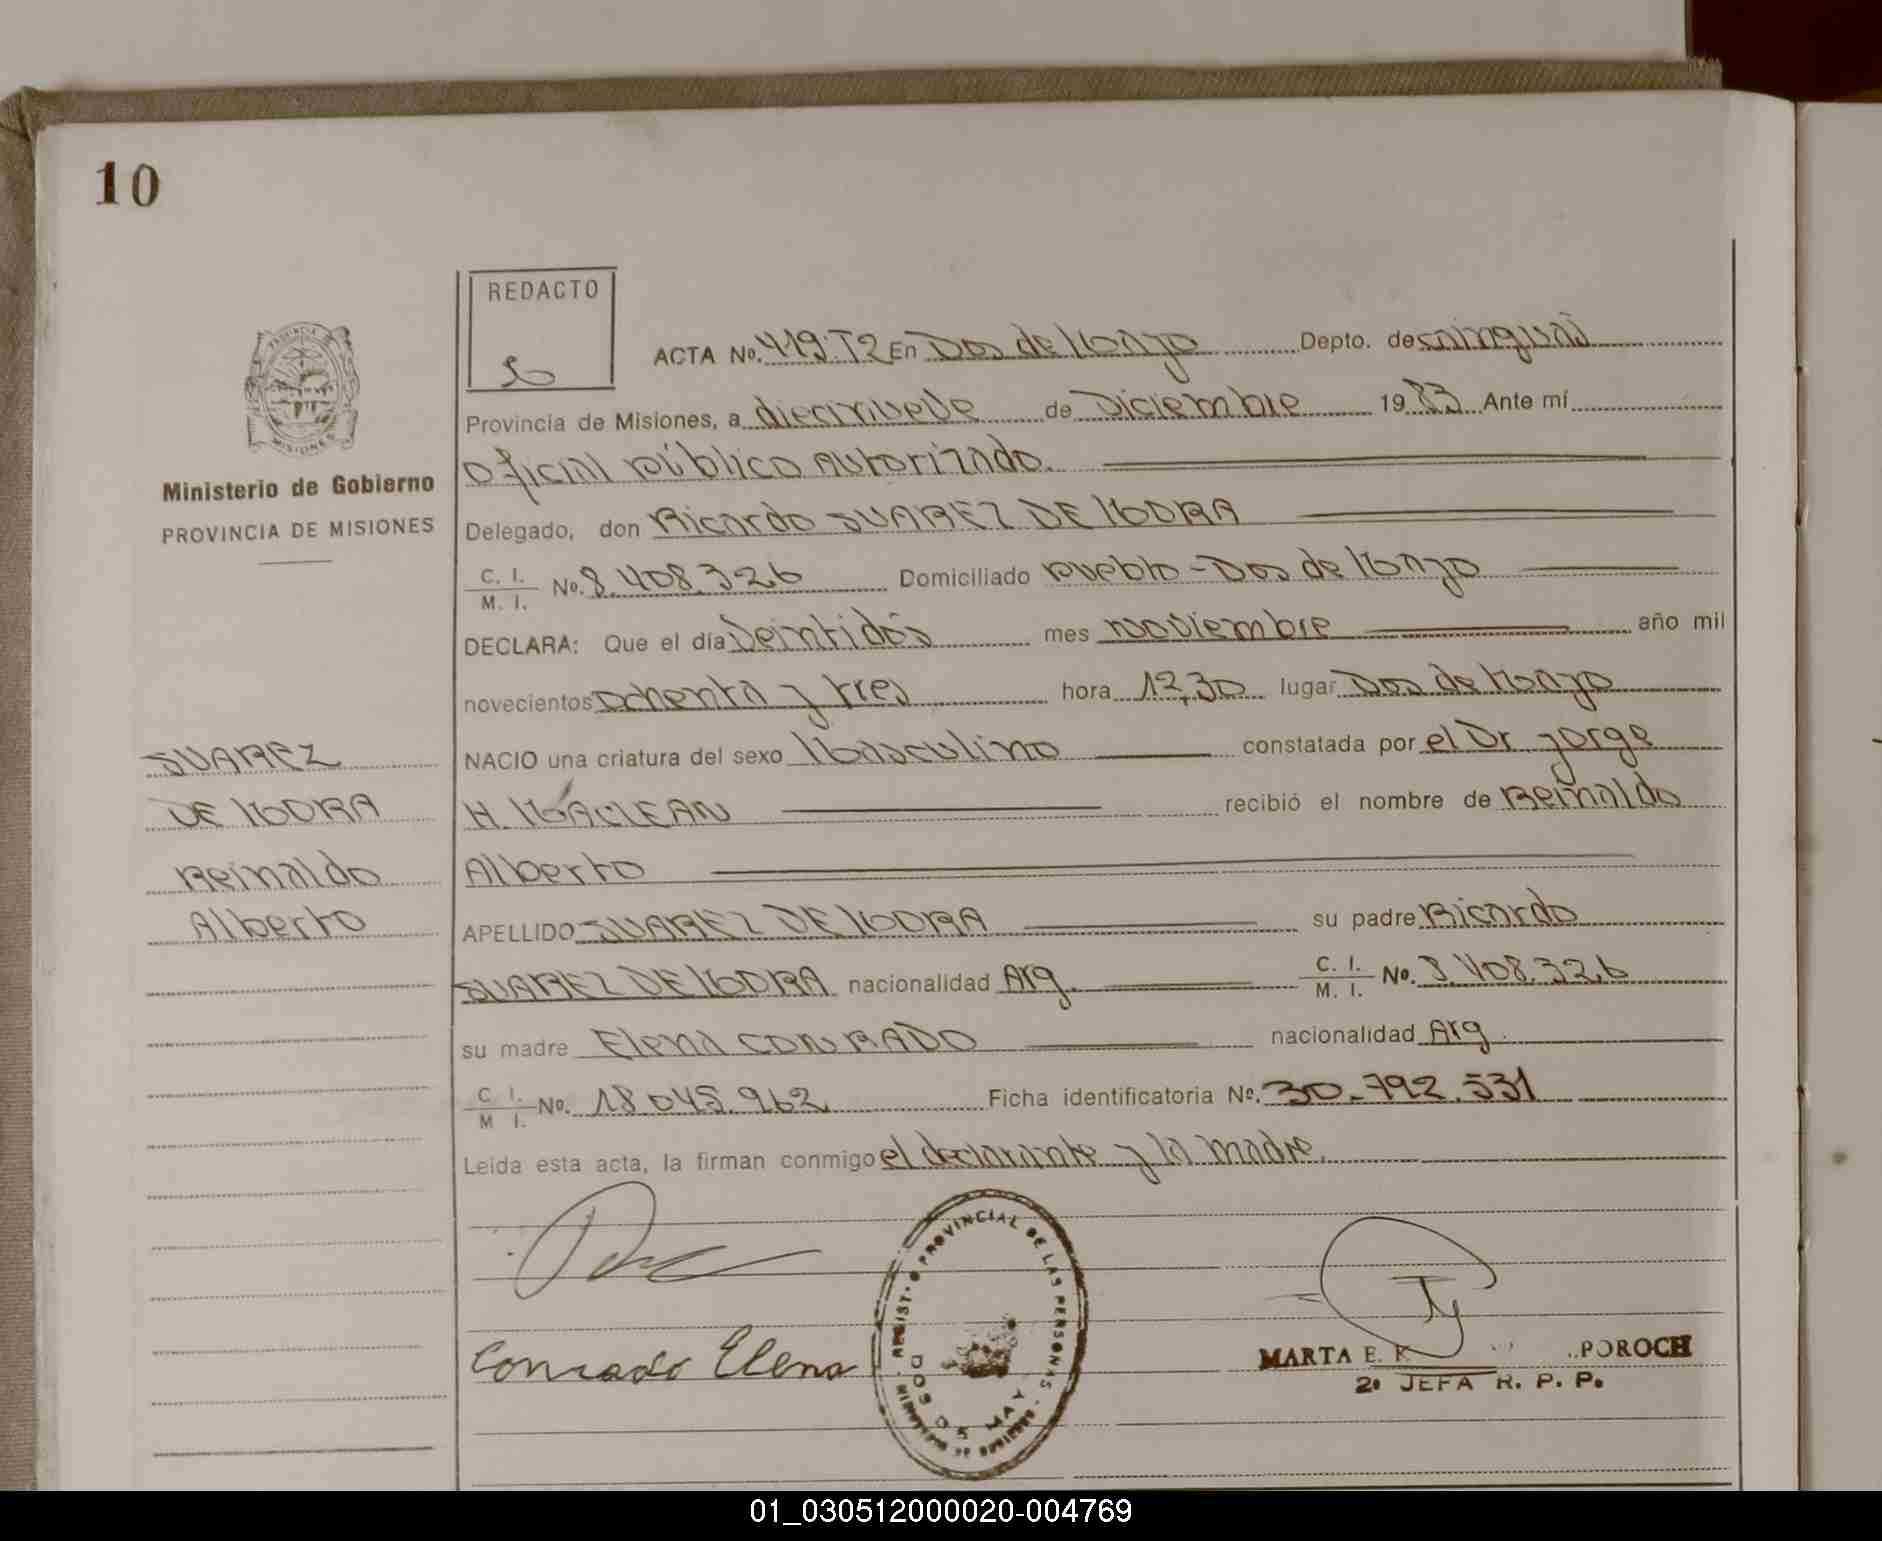 10
REDACTO
ACTA No. 419-T2 En Dos de Mayo Depto. de Cainguás
Provincia de Misiones, a diecinueve de Diciembre 1983 Ante mí
Oficial Público Autorizado.
Delegado, don Ricardo SUAREZ DE MORA
C. I. / M. I. No. 8.408.326 Domiciliado Pueblo - Dos de Mayo
DECLARA: Que el día Veintidós mes noviembre año mil
novecientos ochenta y tres hora 12,30 lugar Dos de Mayo
NACIO una criatura del sexo Masculino constatada por el Dr. Jorge
H. MACLEAN recibió el nombre de Reinaldo
Alberto
APELLIDO SUAREZ DE MORA su padre Ricardo
SUAREZ DE MORA nacionalidad Arg. C. I. / M. I. No. 8.408.326
su madre Elena CONRADO nacionalidad Arg.
C I. / M I. No. 18.045.962 Ficha identificatoria No. 30.792.531
Leída esta acta, la firman conmigo el declarante y la madre.
Ministerio de Gobierno
PROVINCIA DE MISIONES
SUAREZ
DE MORA
Reinaldo
Alberto
Conrado Elena
REGIST. PROVINCIAL DE LAS PERSONAS
DOS DE MAYO
MARTA E. POROCH
2º JEFA R. P. P.
01_030512000020-004769